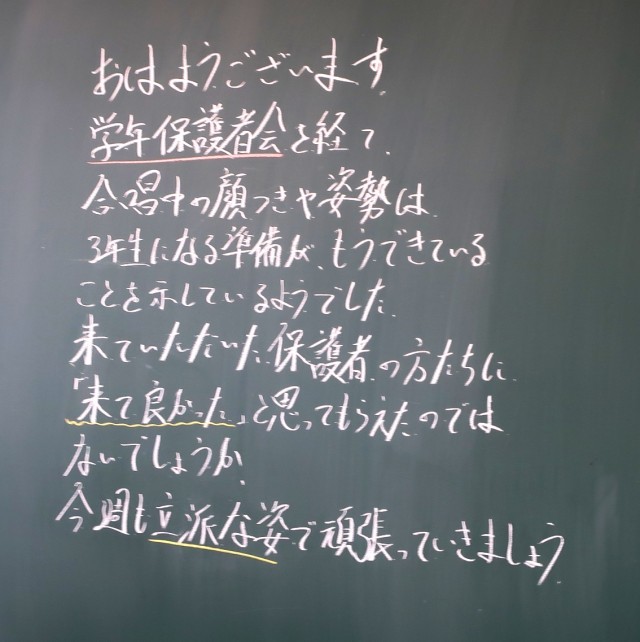 おはようございます。
学年保護者会を経て、
合唱中の顔つきや姿勢は、
3年生になる準備が、もうできている
ことを示しているようでした。
来ていただいた保護者の方たちに
「来て良かった」と思ってもらえたのでは
ないでしょうか。
今週も立派な姿で頑張っていきましょう。